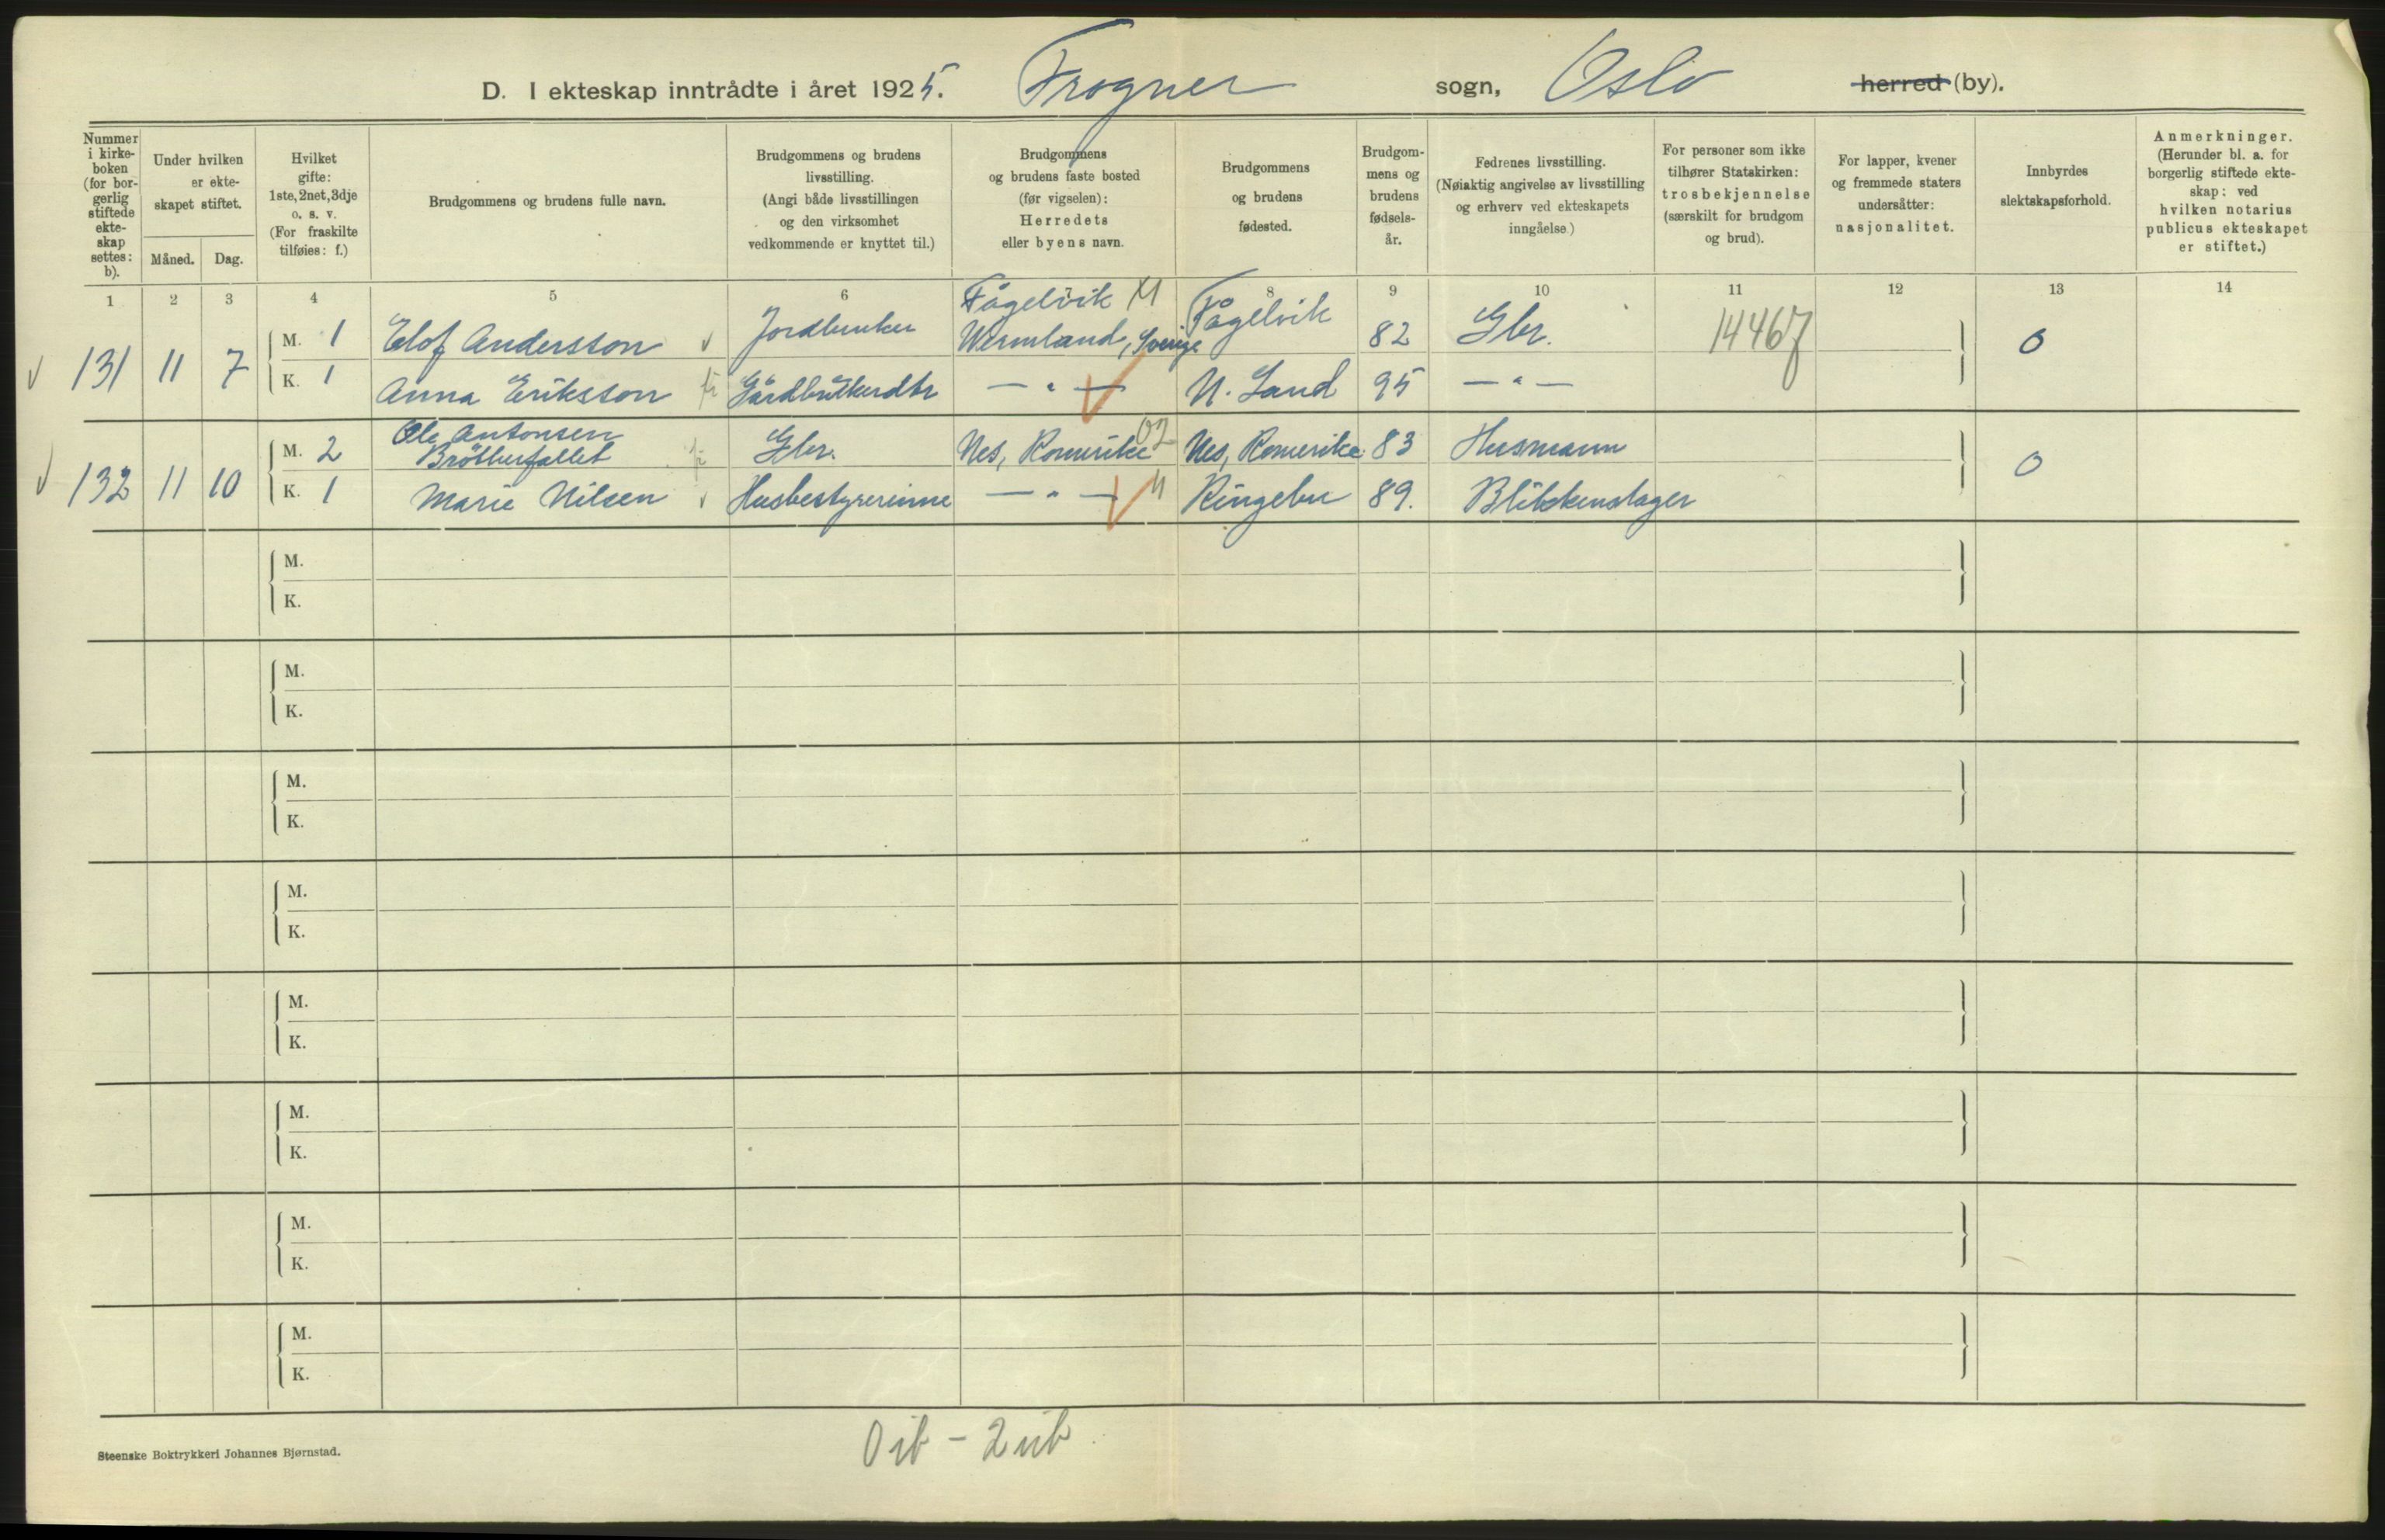 D. I ekteskap inntrådte i året 1925. Frogner sogn, Oslo herred (by).
Nummer i kirke- boken (for bor- gerlig stiftede ekte- skap settes: b).
Under hvilken er ekte- skapet stiftet.
Måned. Dag.
Hvilket gifte: 1ste, 2net, 3dje o. s. v. (For fraskilte tilføies: f.)
Brudgommens og brudens fulle navn.
Brudgommens og brudens livsstilling. (Angi både livsstillingen og den virksomhet vedkommende er knyttet til.)
Brudgommens og brudens faste bosted (før vigselen): Herredets eller byens navn.
Brudgommens og brudens fødested.
Brudgom- mens og brudens fødsels- år.
Fedrenes livsstilling. (Nøiaktig angivelse av livsstilling og erhverv ved ekteskapets inngåelse.)
For personer som ikke tilhører Statskirken: trosbekjennelse (særskilt for brudgom og brud).
For lapper, kvener og fremmede staters undersåtter: nasjonalitet.
Innbyrdes slektskapsforhold.
Anmerkninger. (Herunder bl. a. for borgerlig stiftede ekte- skap: ved hvilken notarius publicus ekteskapet er stiftet.)
1 2 3 4 5 6 7 8 9 10 11 12 13 14
131 11 7 M. 1 Elof Andersson Jordbruker Fågelvik Wermland, Sverige Fågelvik 82 Gbr. 14467 0
K. 1 Anna Eriksson Gårdbrukerdtr — " — N. Land 95 — " —
132 11 10 M. 2 Ole Antonsen Bråtherfallet Gbr. Nes, Romerike 02 Nes, Romerike 83 Husmann 0
K. 1 Marie Nilsen Husbestyrerinne — " — Ringebu 89. Blikkenslager
M.
K.
M.
K.
M.
K.
M.
K.
M.
K.
M.
K.
M.
K.
M.
K.
0 ib - 2 uib.
Steenske Boktrykkeri Johannes Bjørnstad.